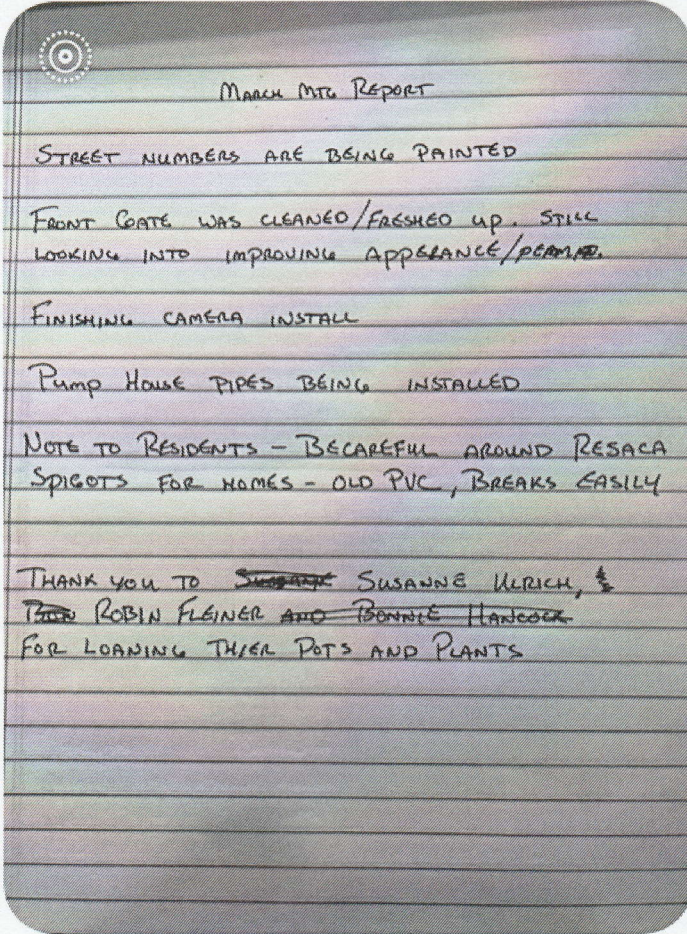 March Mtg Report
Street numbers are being painted
Front Gate was cleaned/freshed up. Still
looking into improving apperance/
Finishing camera install
Pump House pipes being installed
Note to Residents - Becareful around Resaca
Spigots for homes - old PVC, Breaks easily
Thank you to Susanne Ulrich, &
Robin Fleiner and Bonnie Hancock
for loaning thier Pots and Plants